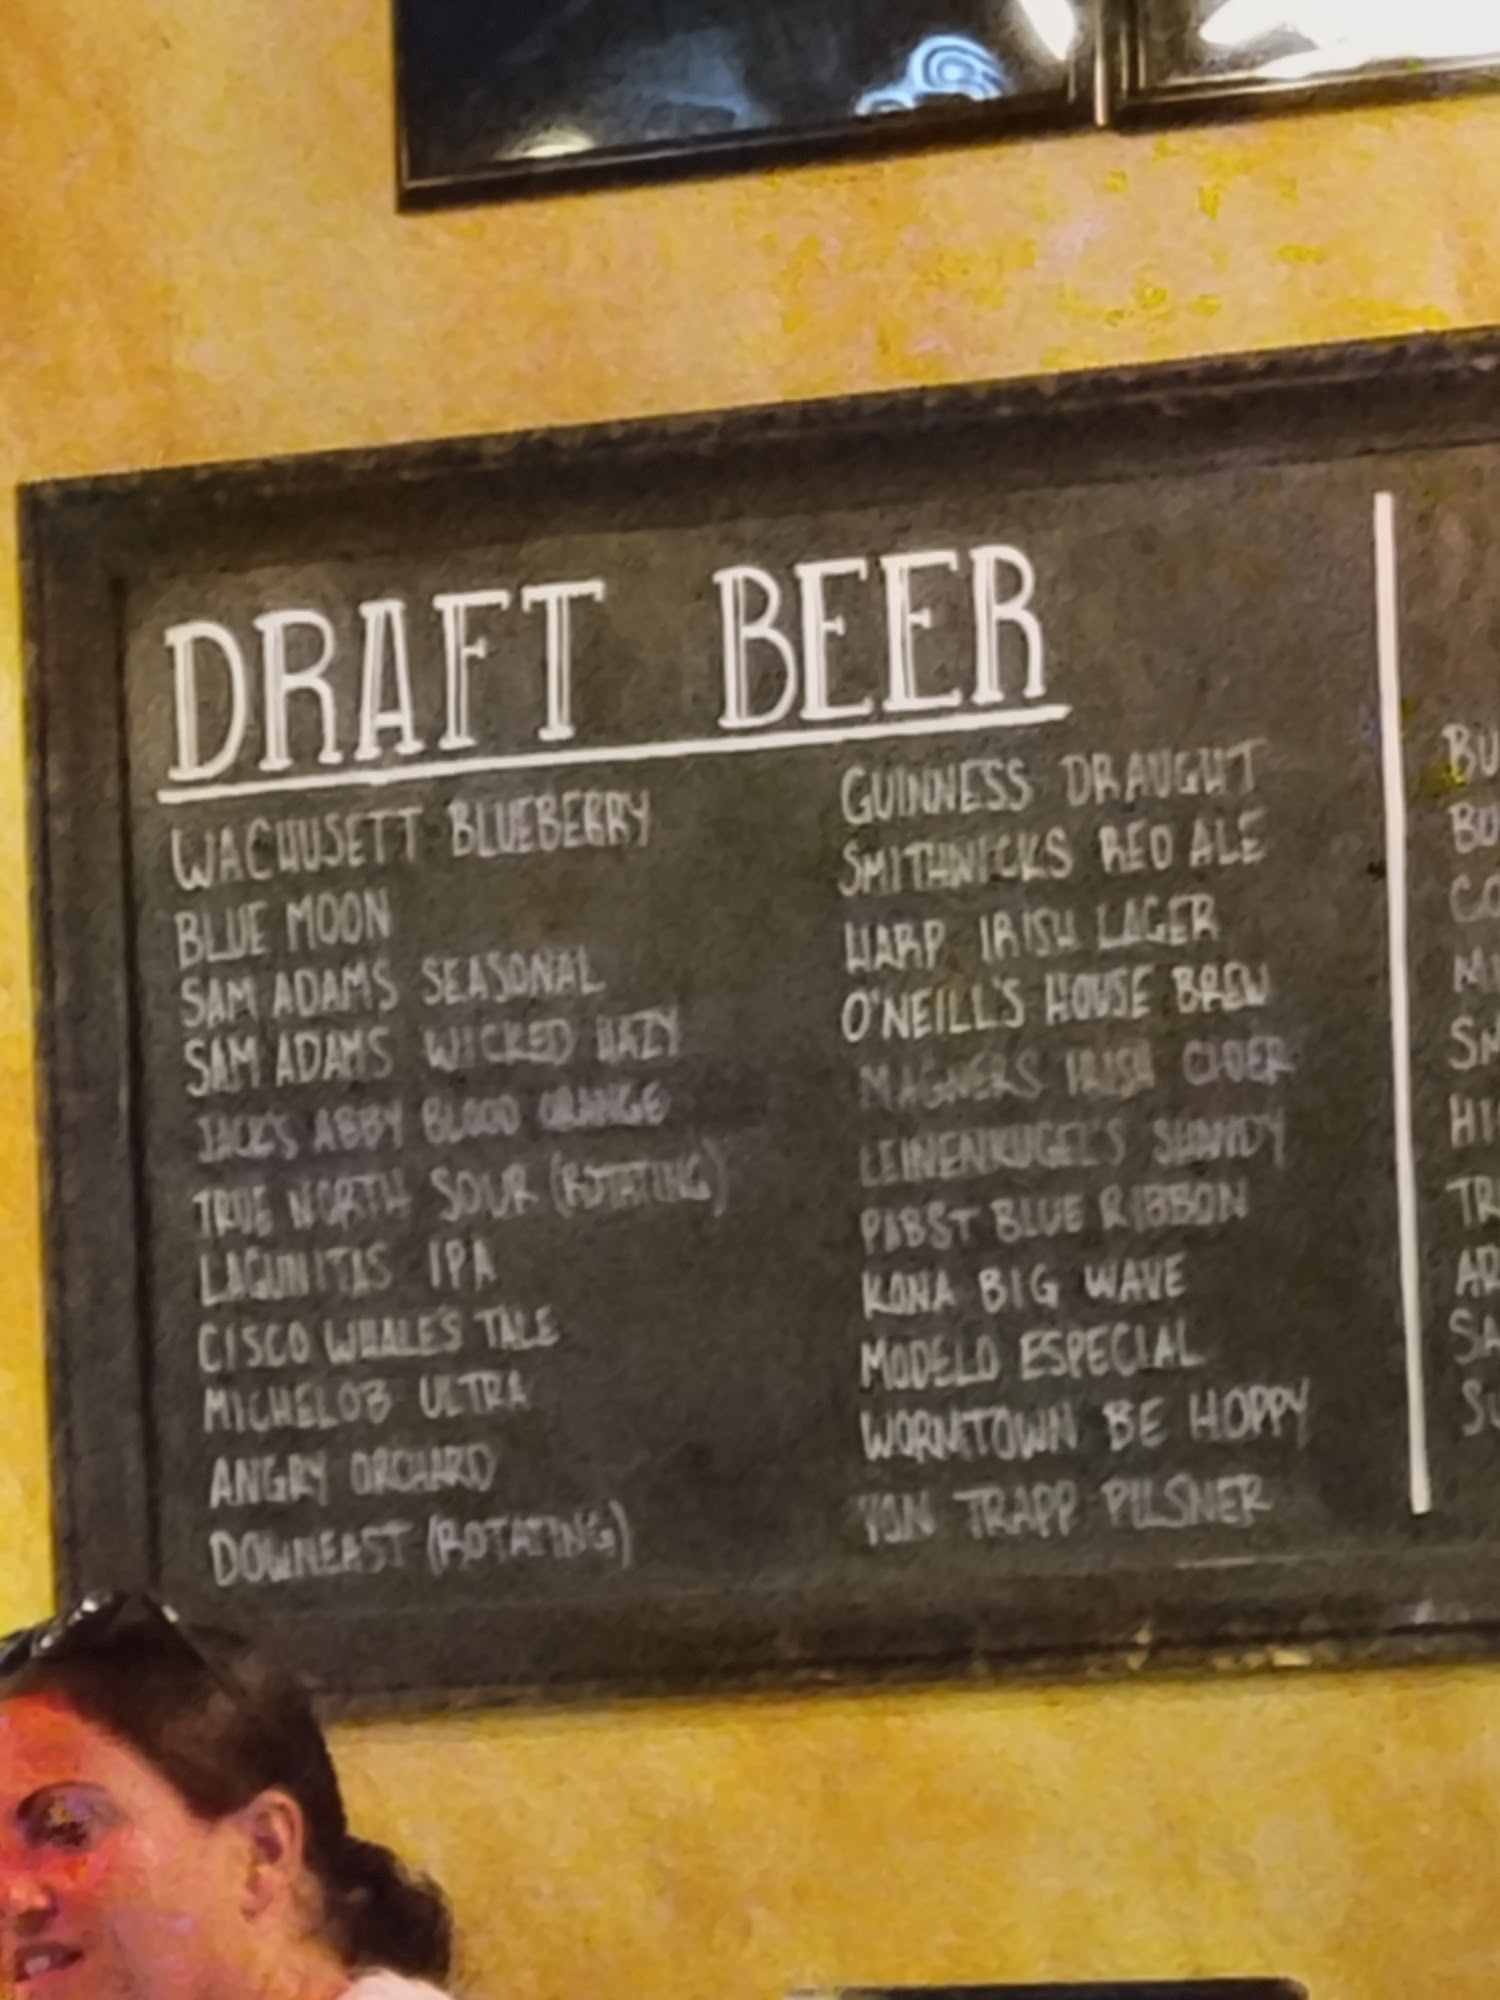 DRAFT BEER
WACHUSETT BLUEBERRY
BLUE MOON
SAM ADAMS SEASONAL
SAM ADAMS WICKED HAZY
JACK'S ABBY BLOOD ORANGE
TRUE NORTH SOUR (ROTATING)
LAGUNITAS IPA
CISCO WHALE'S TALE
MICHELOB ULTRA
ANGRY ORCHARD
DOWNEAST (ROTATING)
GUINNESS DRAUGHT
SMITHNICKS RED ALE
HARP IRISH LAGER
O'NEILL'S HOUSE BREW
MAGNERS IRISH CIDER
LEINENKUGEL'S SHANDY
PABST BLUE RIBBON
KONA BIG WAVE
MODELO ESPECIAL
WORMTOWN BE HOPPY
VON TRAPP PILSNER
BU
BU
CO
MI
SM
HI
TR
AR
SA
SU